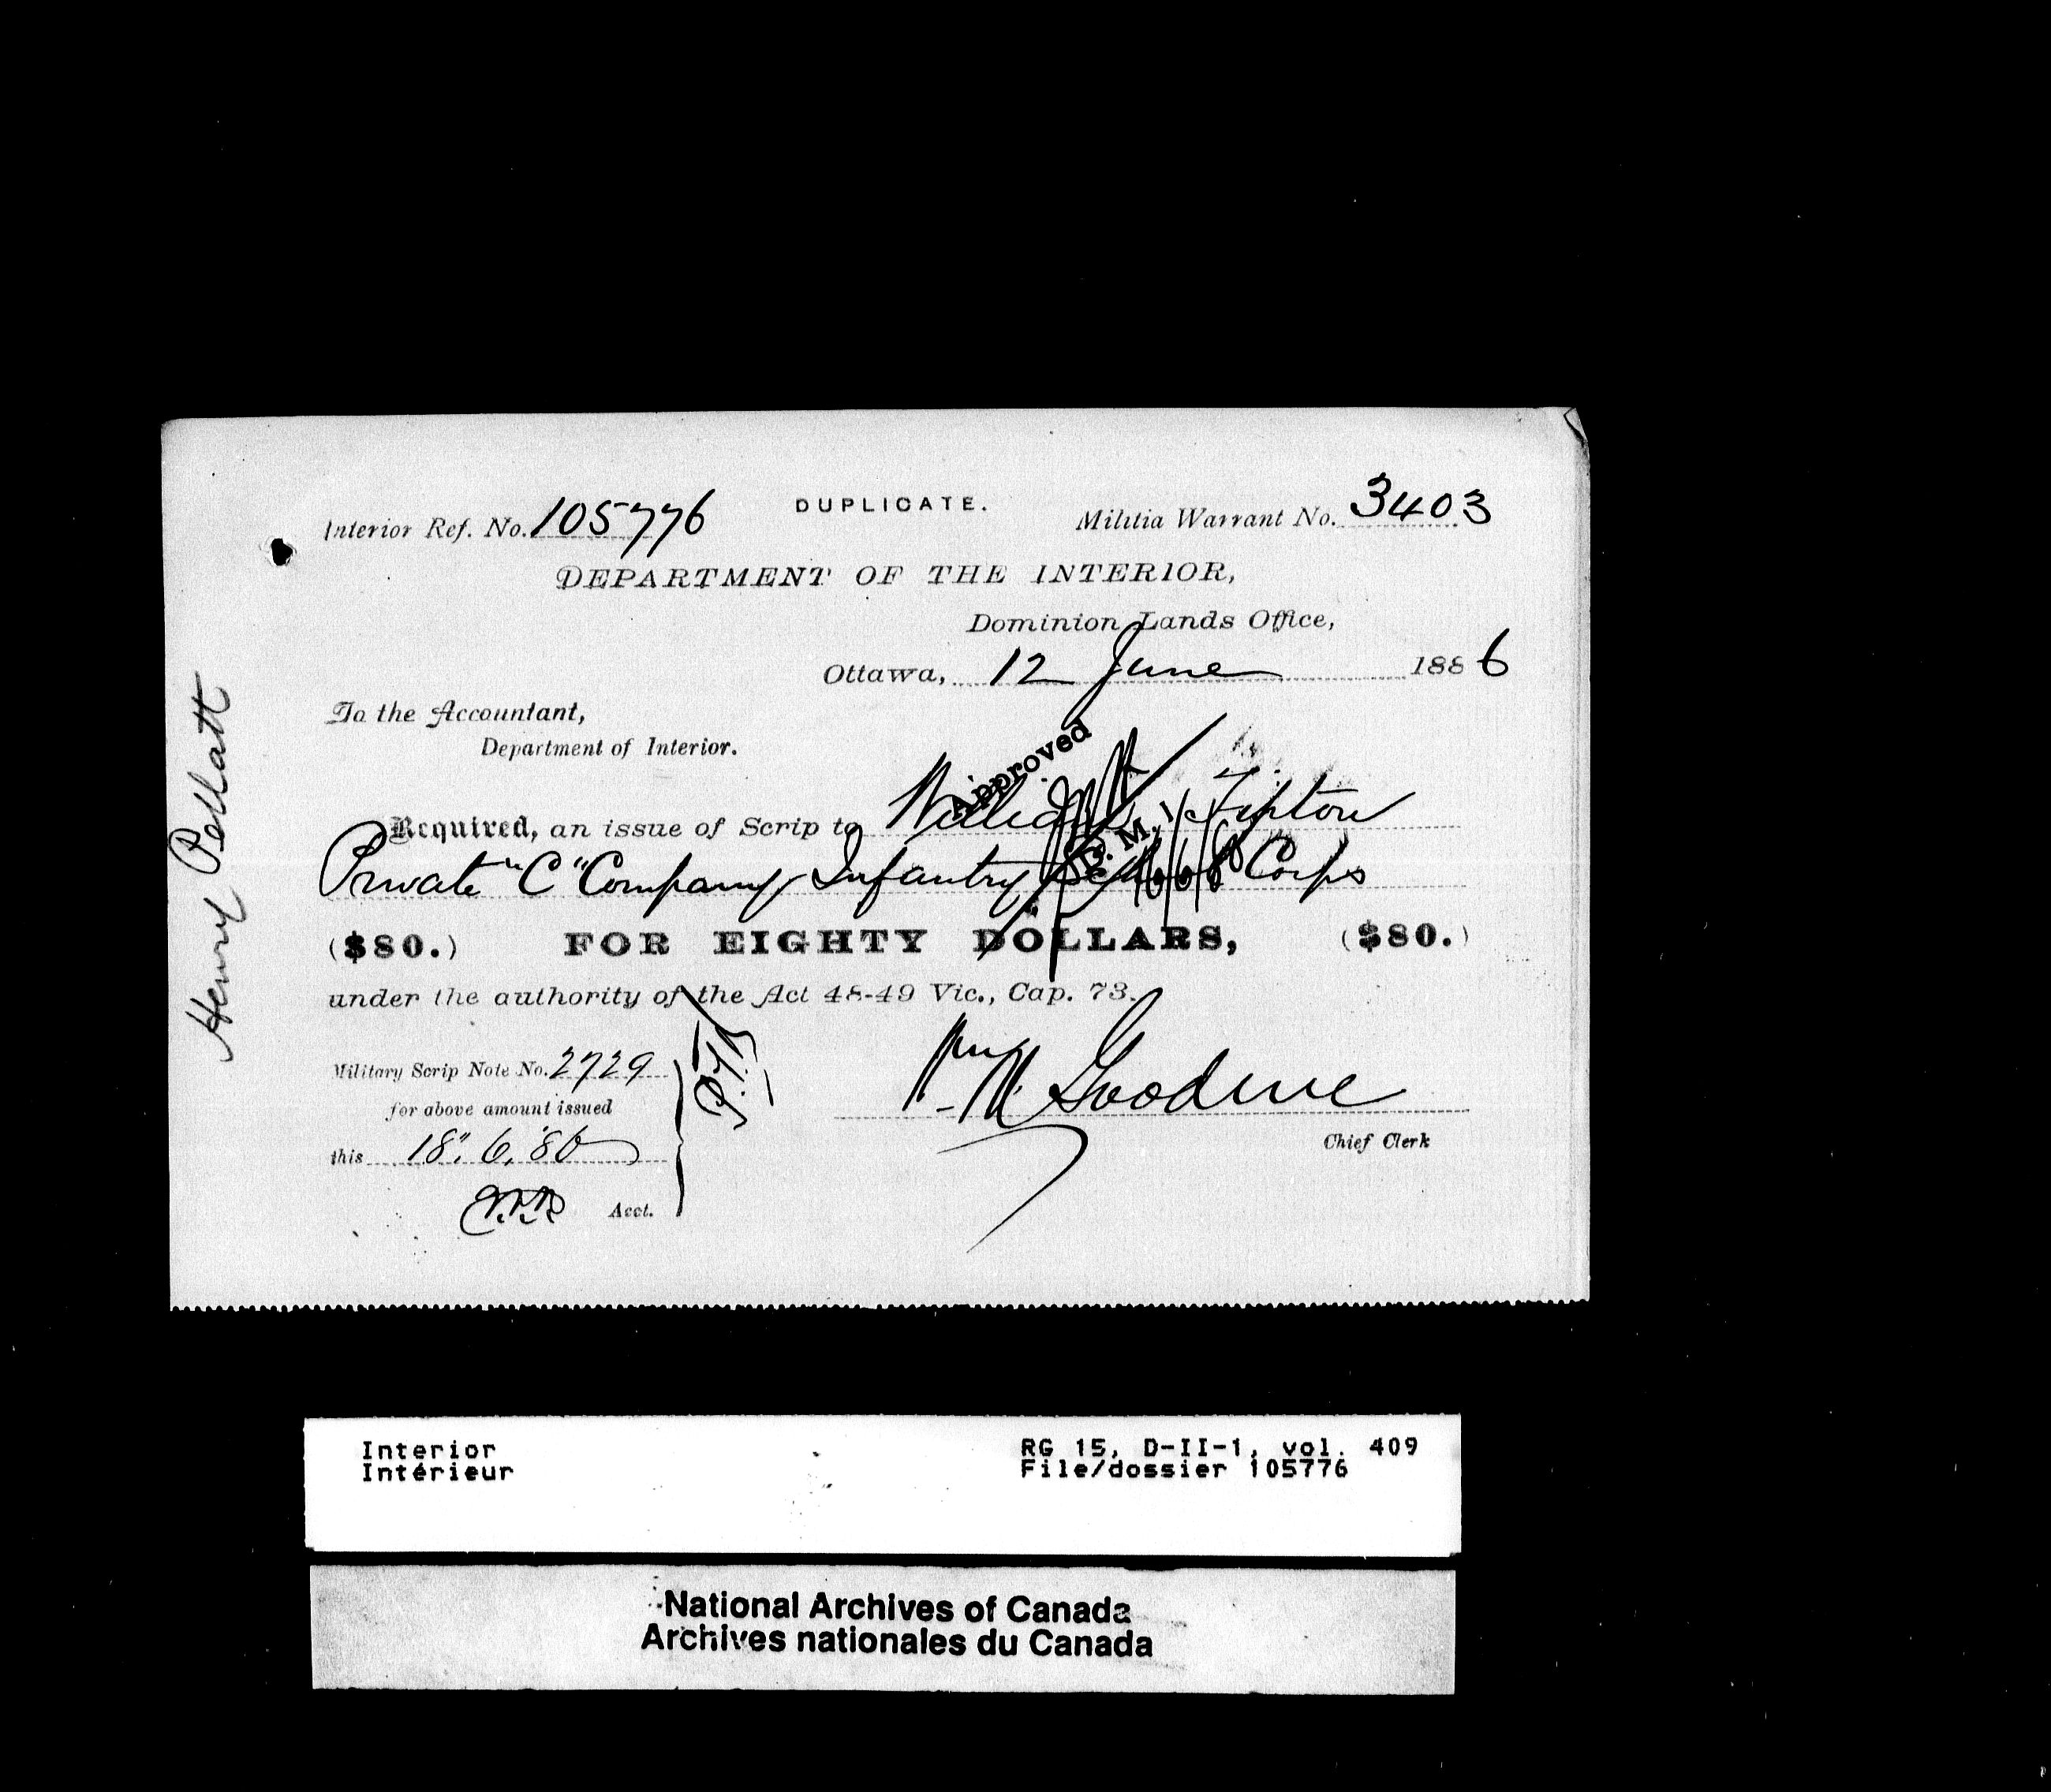 DUPLICATE.
Interior Ref. No. 105776 Militia Warrant No. 3403
DEPARTMENT OF THE INTERIOR,
Dominion Lands Office,
Ottawa, 12 June 1886
To the Accountant,
Department of Interior.
Approved
Required, an issue of Scrip to William Tipton
D. M. I.
Private "C" Company Infantry School Corps
($80.) FOR EIGHTY DOLLARS, ($80.)
under the authority of the Act 48-49 Vic., Cap. 73.
Military Scrip Note No. 2729
for above amount issued
this 18". 6. '86
Acct.
Chief Clerk
Henry Pellatt
Interior RG 15, D-II-1, vol. 409
Intérieur File/dossier 105776
National Archives of Canada
Archives nationales du Canada